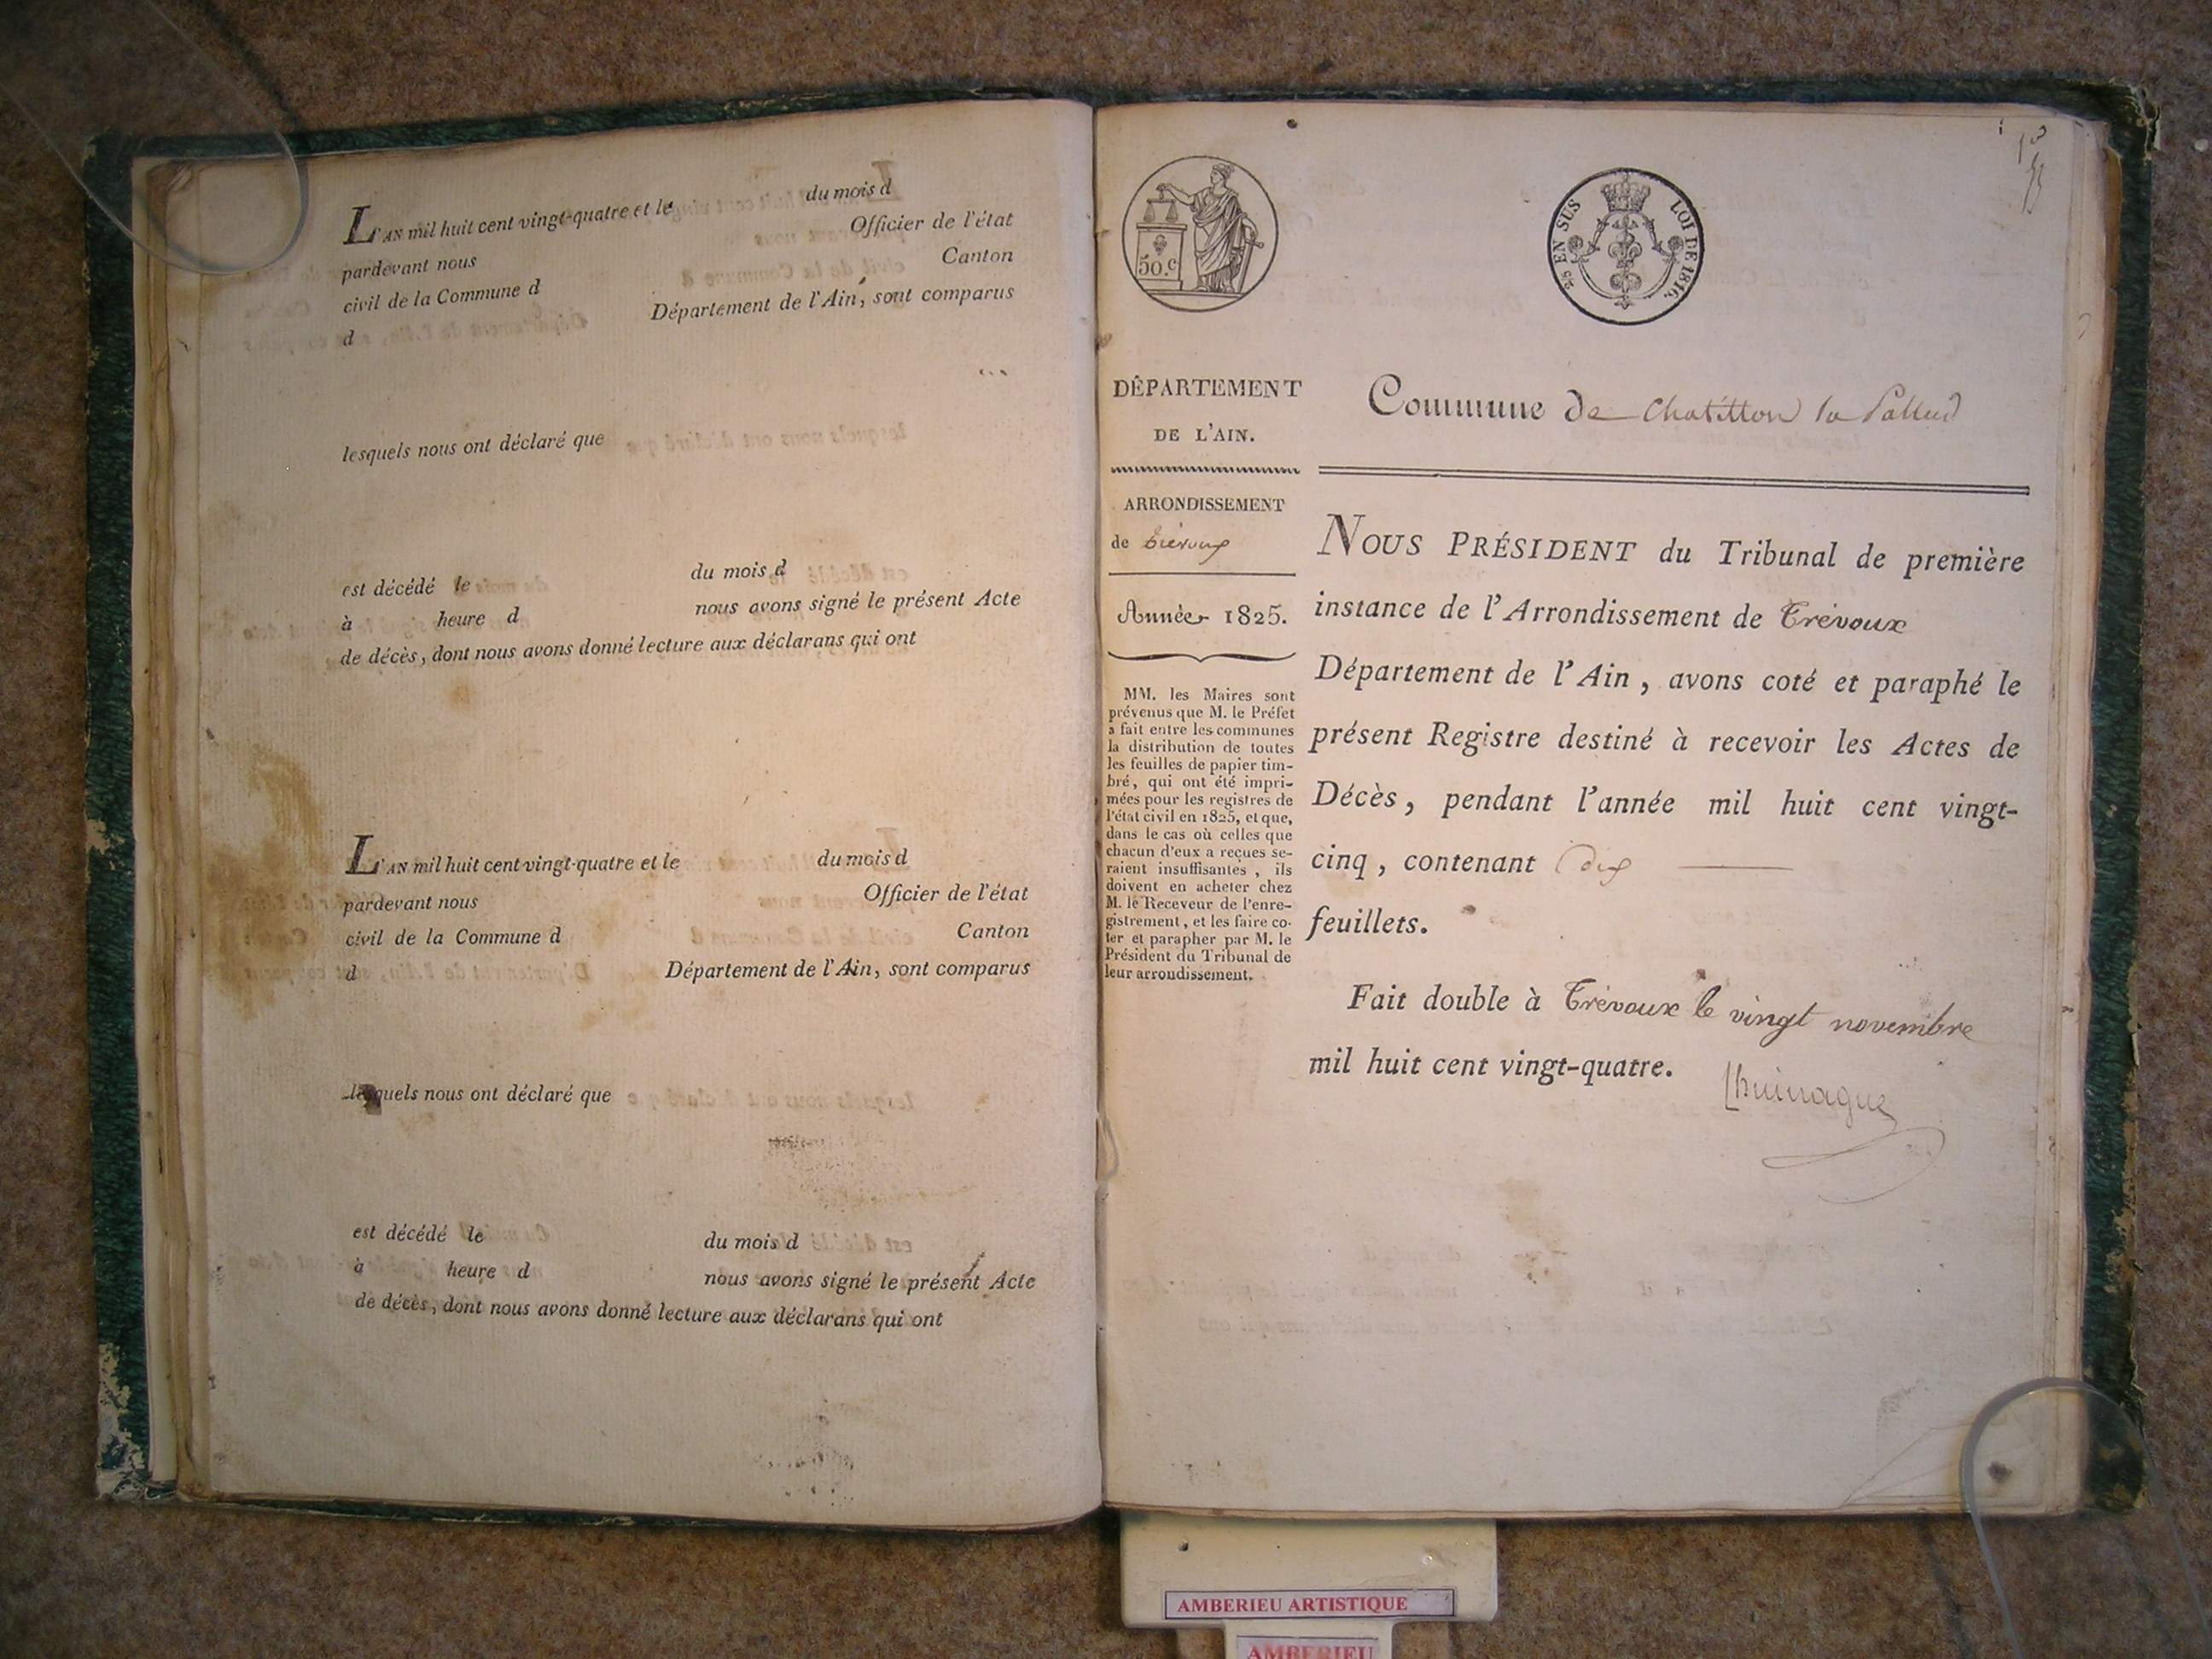 L'AN mil huit cent vingt-quatre et le du mois d
pardevant nous Officier de l'état
civil de la Commune d Canton
d Département de l'Ain, sont comparus
lesquels nous ont déclaré que
est décédé le du mois d
à heure d nous avons signé le présent Acte
de décès, dont nous avons donné lecture aux déclarans qui ont
L'AN mil huit cent vingt-quatre et le du mois d
pardevant nous Officier de l'état
civil de la Commune d Canton
d Département de l'Ain, sont comparus
lesquels nous ont déclaré que
est décédé le du mois d
à heure d nous avons signé le présent Acte
de décès, dont nous avons donné lecture aux déclarans qui ont
50.c
25 EN SUS LOI DE 1816.
DÉPARTEMENT
DE L'AIN.
ARRONDISSEMENT
de trévoux
Année 1825.
MM. les Maires sont
prévenus que M. le Préfet
a fait entre les communes
la distribution de toutes
les feuilles de papier tim-
bré, qui ont été impri-
mées pour les registres de
l'état civil en 1825, et que,
dans le cas où celles que
chacun d'eux a reçues se-
raient insuffisantes, ils
doivent en acheter chez
M. le Receveur de l'enre-
gistrement, et les faire co-
ter et parapher par M. le
Président du Tribunal de
leur arrondissement.
Commune de Chatillon la Pallud
NOUS PRÉSIDENT du Tribunal de première
instance de l'Arrondissement de Trévoux
Département de l'Ain, avons coté et paraphé le
présent Registre destiné à recevoir les Actes de
Décès, pendant l'année mil huit cent vingt-
cinq, contenant dix
feuillets.
Fait double à Trévoux le vingt novembre
mil huit cent vingt-quatre.
AMBERIEU ARTISTIQUE
AMBERIEU